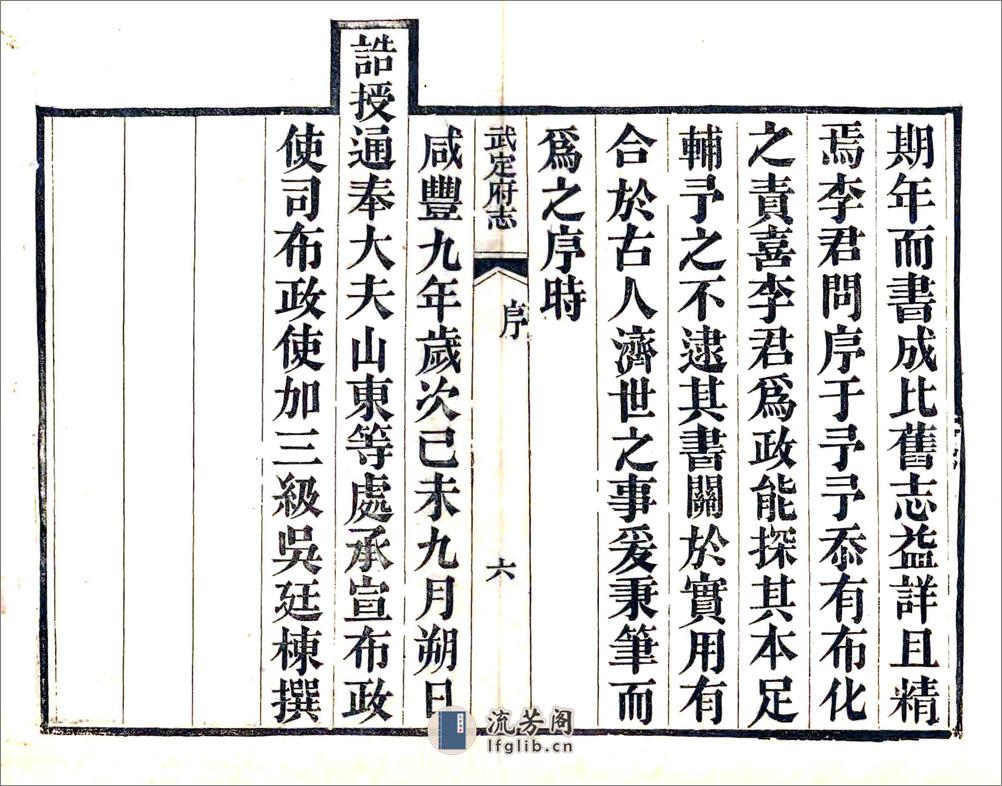 期年而書成比舊志益詳且精
焉李君問序于予予忝有布化
之責喜李君爲政能探其本足
輔予之不逮其書關於實用有
合於古人濟世之事爰秉筆而
爲之序時
武定府志
序
六
咸豐九年歲次己未九月朔日
誥授通奉大夫山東等處承宣布政
使司布政使加三級吳廷棟撰
流芳阁
lfglib.cn